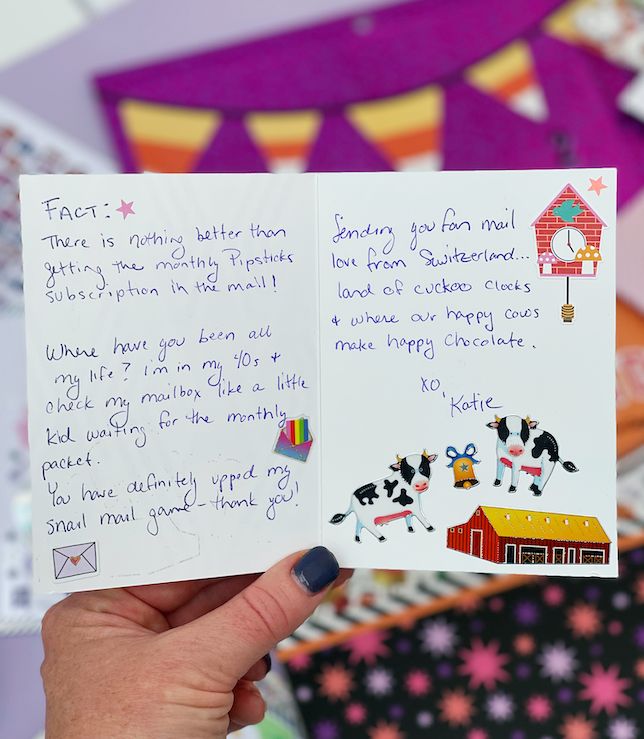 FACT:
There is nothing better than
getting the monthly Pipsticks
subscription in the mail!
Where have you been all
my life? I'm in my 40s &
check my mailbox like a little
kid waiting for the monthly
packet.
You have definitely upped my
snail mail game - thank you!
Sending you fan mail
love from Switzerland...
land of cuckoo clocks
& where our happy cows
make happy chocolate.
XO,
Katie